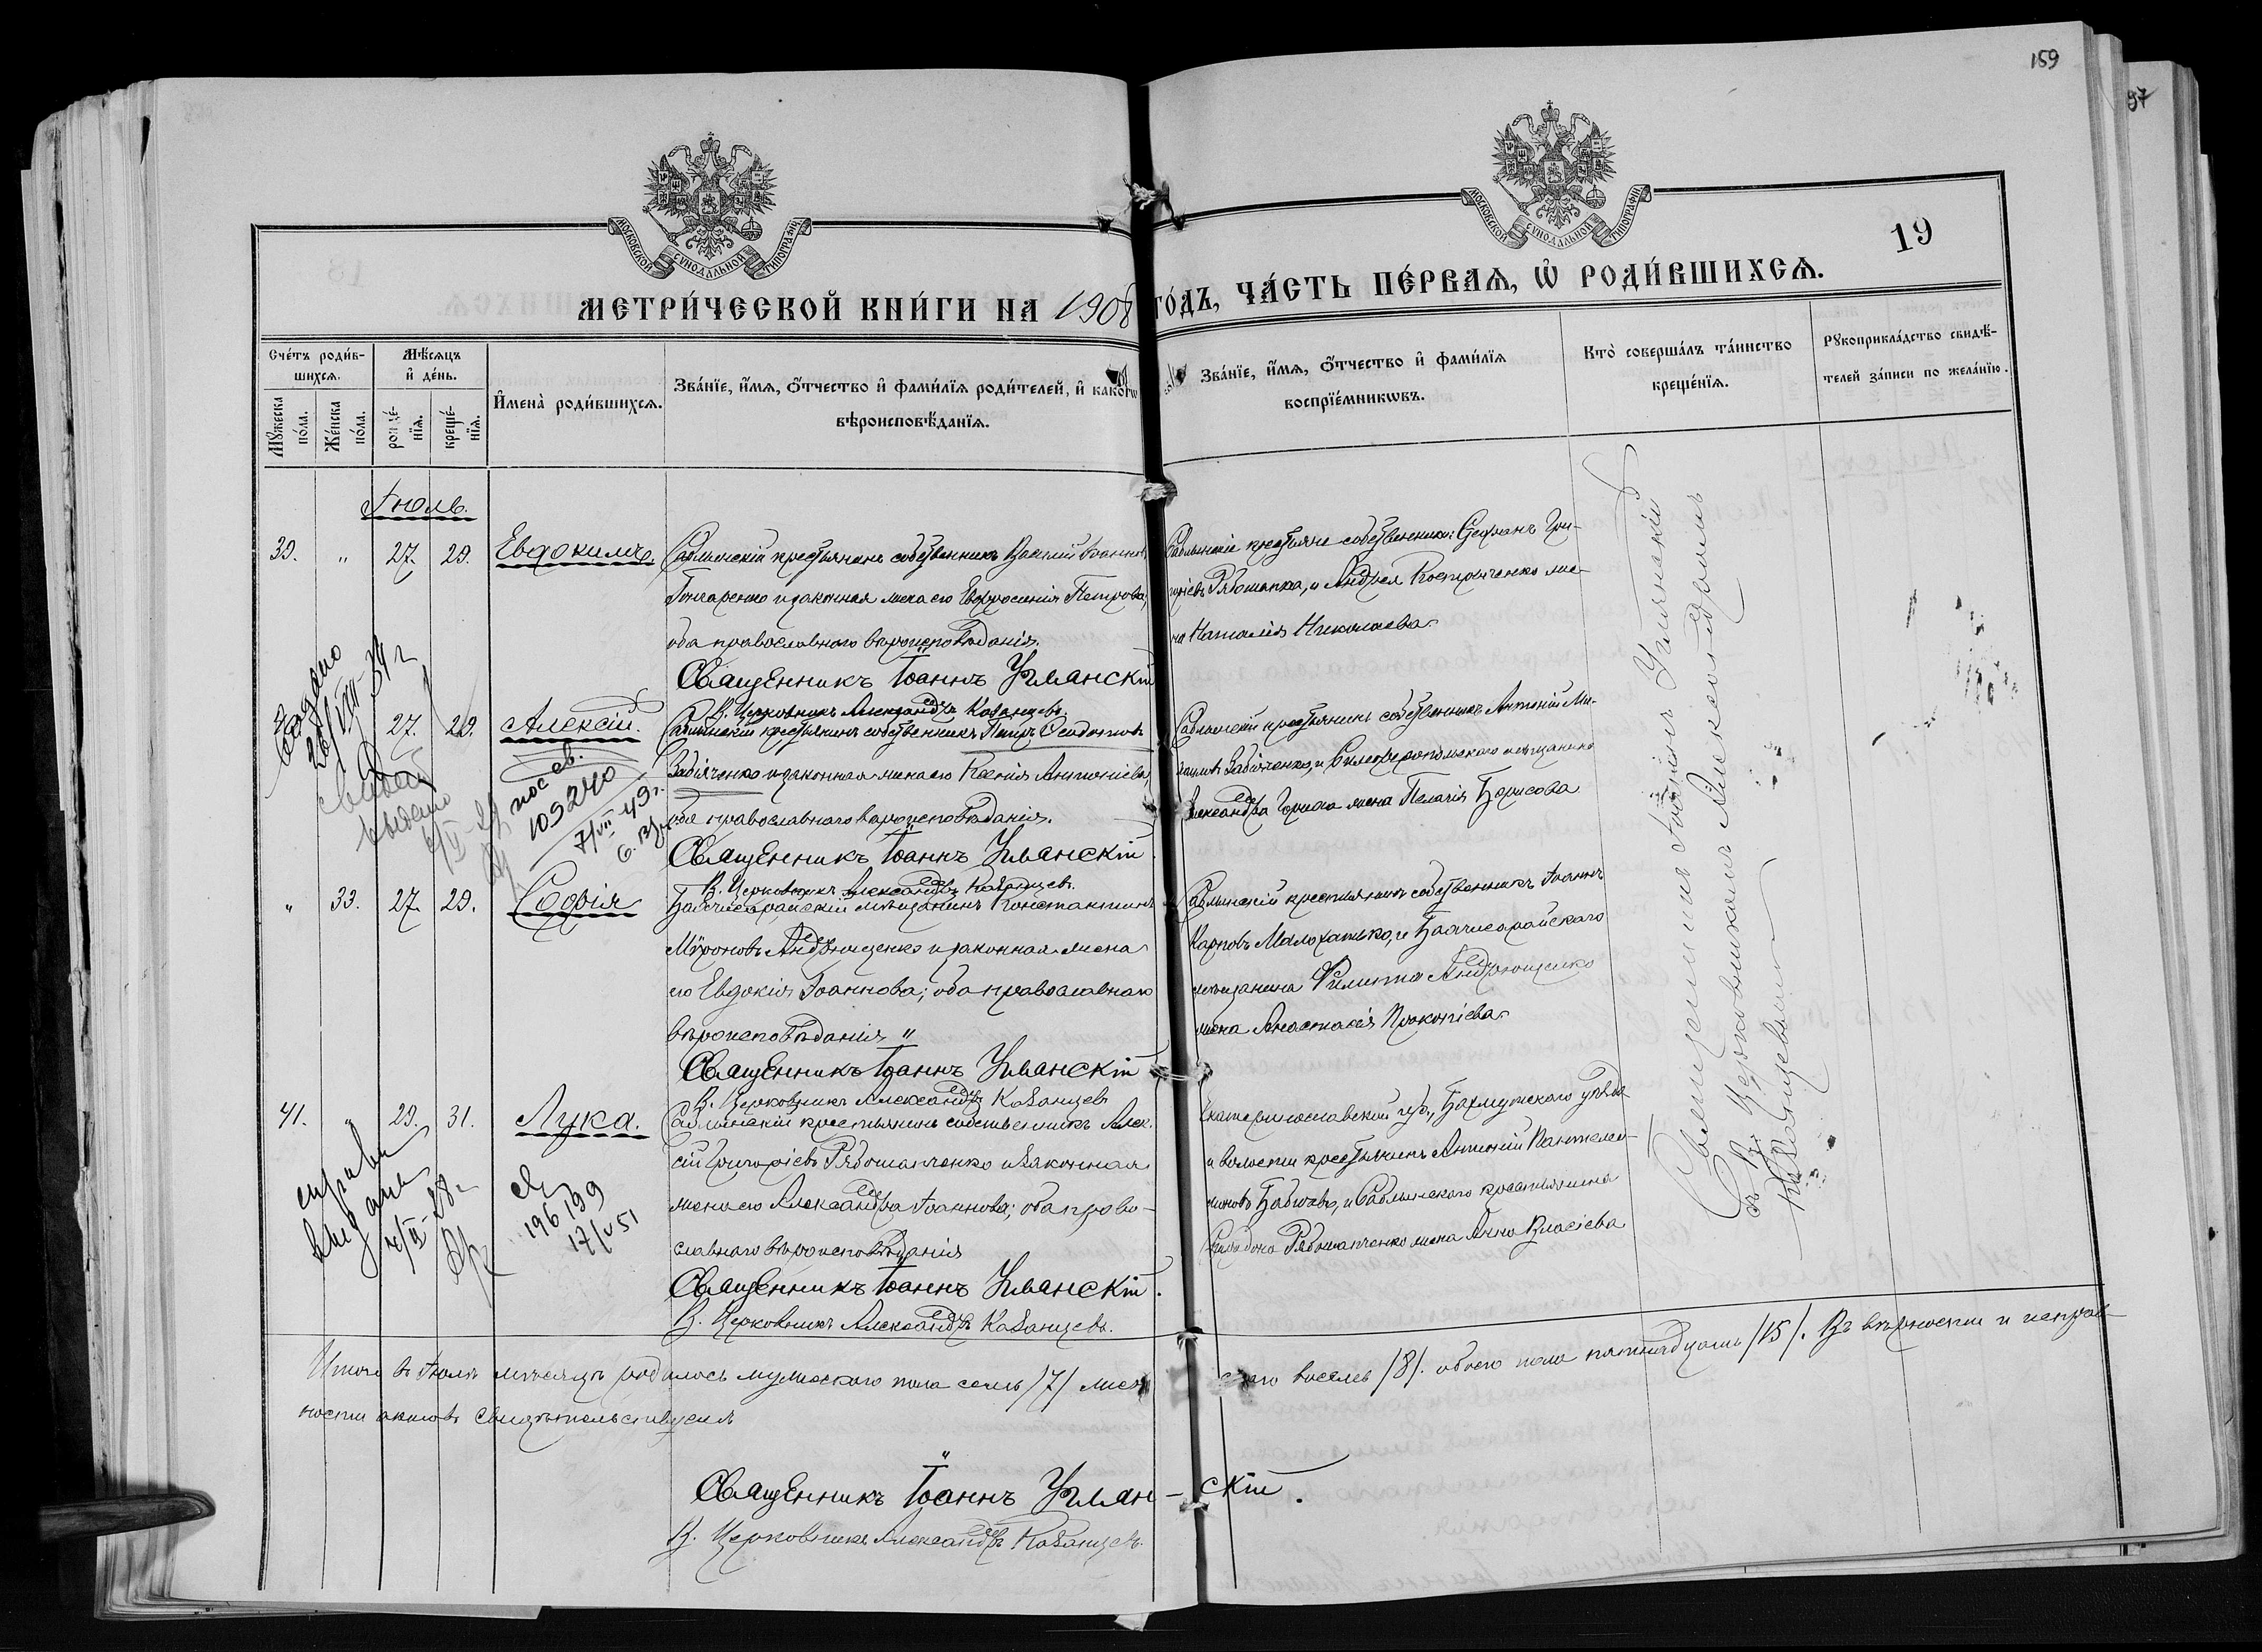 159
97
МОСКОВСКОЙ СѴНОДАЛЬНОЙ ТИПОГРАФІИ
МОСКОВСКОЙ СѴНОДАЛЬНОЙ ТИПОГРАФІИ
19
МЕТРИ́ЧЕСКОЙ КНИ́ГИ НА 1908 ГО́ДЪ, ЧА́СТЬ ПЕ́РВАѦ, Ѡ҆ РОДИ́ВШИХСѦ.
Счётъ роди́в-
шихсѧ.
Мѣ́сѧцъ
и҆ де́нь.
Мꙋ́жеска по́ла.
Же́нска по́ла.
рожде́-
нїѧ.
креще́-
нїѧ.
И҆мена̀ роди́вшихсѧ.
Зва́нїе, и҆́мѧ, ѻ҆́тчество и҆ фами́лїѧ роди́телей, и҆ како́гѡ
вѣроисповѣ́данїѧ.
Зва́нїе, и҆́мѧ, ѻ҆́тчество и҆ фами́лїѧ
воспрїе́мникѡвъ.
Кто̀ соверша́лъ та́инство
креще́нїѧ.
Рꙋкоприкла́дство свидѣ́-
телей за́писи по жела́нїю.
Іюль.
39. " 27. 29. Евдокимъ.
Саблынскій крестьянинъ собственникъ Василій Іоанновъ
Гончаренко и законная жена его Евфросинія Петрова,
оба православнаго вѣроисповѣданія.
Священникъ Іоаннъ Уманскій
В. Церковникъ Александръ Казанцевъ.
Саблынскіе крестьяне собственники: Стефанъ Гри-
горіевъ Рябошапка, и Андрея Костюченко же-
на Наталія Николаева
27. 29. Алексій.
Саблынскій крестьянинъ собственникъ Петръ
Забіяченко и законная жена его Ксенія Антоніева,
оба православнаго вѣроисповѣданія.
Священникъ Іоаннъ Уманскій.
В. Церковникъ Александръ Казанцевъ.
Саблынскій крестьянинъ собственникъ Антоній Ми-
хаиловъ Забіяченко, и Симферопольскаго мѣщанина
Александра жена Пелагія Борисова
Выдано
26/VIII-34 г
пос св.
109240
7/VII 49 г.
" 33. 27. 29. Софія
Бахчисарайскій мѣщанинъ Константинъ
Мѵроновъ Андрющенко и законная жена
его Евдокія Іоаннова; оба православнаго
вѣроисповѣданія "
Священникъ Іоаннъ Уманскій
В. Церковникъ Александръ Казанцевъ
Саблынскій крестьянинъ собственникъ Іоаннъ
Карповъ Малохатько, и Бахчисарайскаго
мѣщанина Филиппа Андрющенко
жена Анастасія Прокопіева
41. " 29. 31. Лука.
Саблынскій крестьянинъ собственникъ Алек-
сій Григоріевъ Рябошапченко и законная
жена его Александра Іоаннова; оба право-
славнаго вѣроисповѣданія
Священникъ Іоаннъ Уманскій.
В. Церковникъ Александръ Казанцевъ.
Екатеринославской губ., Бахмутскаго уѣзда
и волости крестьянинъ Антоній Пантелеи-
моновъ и Саблынскаго крестьянина
Рябошапченко жена Анна Власіева
196139
17/V 51
Священникъ Іоаннъ Уманскій
съ В. Церковникомъ Александромъ
Казанцевымъ
Итого въ Іюлѣ мѣсяцѣ родилось мужескаго пола семь /7/ жен-
скаго восемь /8/. обоего пола пятнадцать /15/. Въ вѣрности и исправ-
ности актовъ свидѣтельствуемъ
Священникъ Іоаннъ Уман-скій.
В. Церковникъ Александръ Казанцевъ.